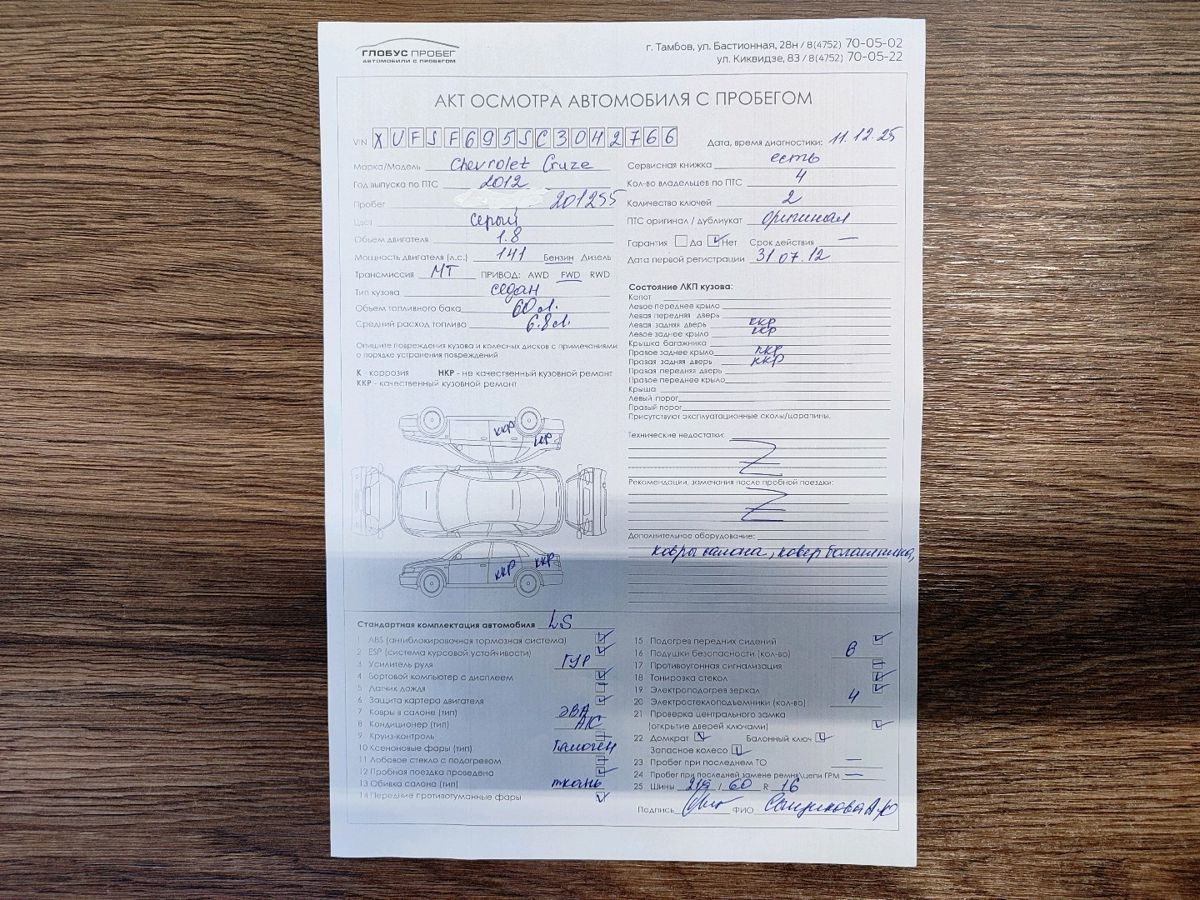 ГЛОБУС ПРОБЕГ
АВТОМОБИЛИ С ПРОБЕГОМ
г. Тамбов, ул. Бастионная, 28н / 8(4752) 70-05-02
ул. Киквидзе, 83 / 8(4752) 70-05-22
АКТ ОСМОТРА АВТОМОБИЛЯ С ПРОБЕГОМ
VIN XUFSF695SC3042766
Дата, время диагностики: 11.12.25
Марка/Модель Chevrolet Cruze
Год выпуска по ПТС 2012
Пробег 201255
Цвет Серый
Объем двигателя 1.8
Мощность двигателя (л.с.) 141 Бензин Дизель
Трансмиссия МТ ПРИВОД: AWD FWD RWD
Тип кузова седан
Объем топливного бака 60 л.
Средний расход топлива 6.8 л.
Опишите повреждения кузова и колесных дисков с примечаниями
о порядке устранения повреждений
К - коррозия НКР - не качественный кузовной ремонт
ККР - качественный кузовной ремонт
Сервисная книжка есть
Кол-во владельцев по ПТС 4
Количество ключей 2
ПТС оригинал / дубликат Оригинал
Гарантия Да Нет Срок действия —
Дата первой регистрации 31.07.12
Состояние ЛКП кузова:
Капот
Левое переднее крыло
Левая передняя дверь
Левая задняя дверь ККР
Левое заднее крыло ККР
Крышка багажника
Правое заднее крыло ККР
Правая задняя дверь ККР
Правая передняя дверь
Правое переднее крыло
Крыша
Левый порог
Правый порог
Присутствуют эксплуатационные сколы/царапины.
Технические недостатки:
Рекомендации, замечания после пробной поездки:
Дополнительное оборудование:
ковры салона, ковер багажника,
ККР
ККР
ККР
ККР
Стандартная комплектация автомобиля LS
1 ABS (антиблокировочная тормозная система)
2 ESP (система курсовой устойчивости)
3 Усилитель руля ГУР
4 Бортовой компьютер с дисплеем
5 Датчик дождя
6 Защита картера двигателя
7 Ковры в салоне (тип) ЭВА
8 Кондиционер (тип) АС
9 Круиз-контроль
10 Ксеноновые фары (тип) Галоген
11 Лобовое стекло с подогревом
12 Пробная поездка проведена
13 Обивка салона (тип) ткань
14 Передние противотуманные фары
15 Подогрев передних сидений
16 Подушки безопасности (кол-во)
17 Противоугонная сигнализация
18 Тонировка стекол
19 Электроподогрев зеркал
20 Электростеклоподъемники (кол-во) 4
21 Проверка центрального замка
(открытие дверей ключами)
22 Домкрат Балонный ключ
Запасное колесо
23 Пробег при последнем ТО —
24 Пробег при последней замене ремня\цепи ГРМ —
25 Шины / 60 R 16
Подпись ФИО